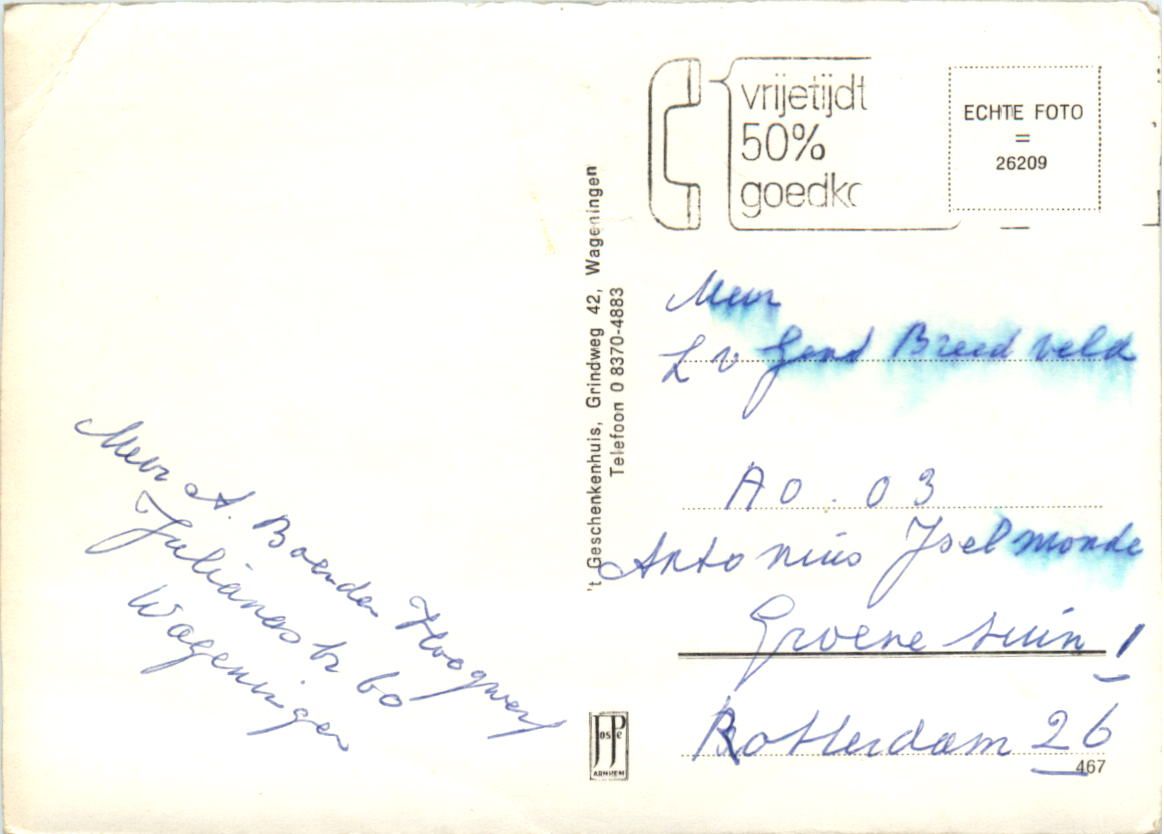 Mevr A. Boender Hoogwerf
Julianastr 60
Wageningen
't Geschenkenhuis, Grindweg 42, Wageningen
Telefoon 0 8370-4883
JosPé
ARNHEM
vrijetijdt
50%
goedko
ECHTE FOTO
=
26209
Mevr
L v Gend Breedveld
A0.03
Antonius Jselmonde
Groene tuin 1
Rotterdam 26
467